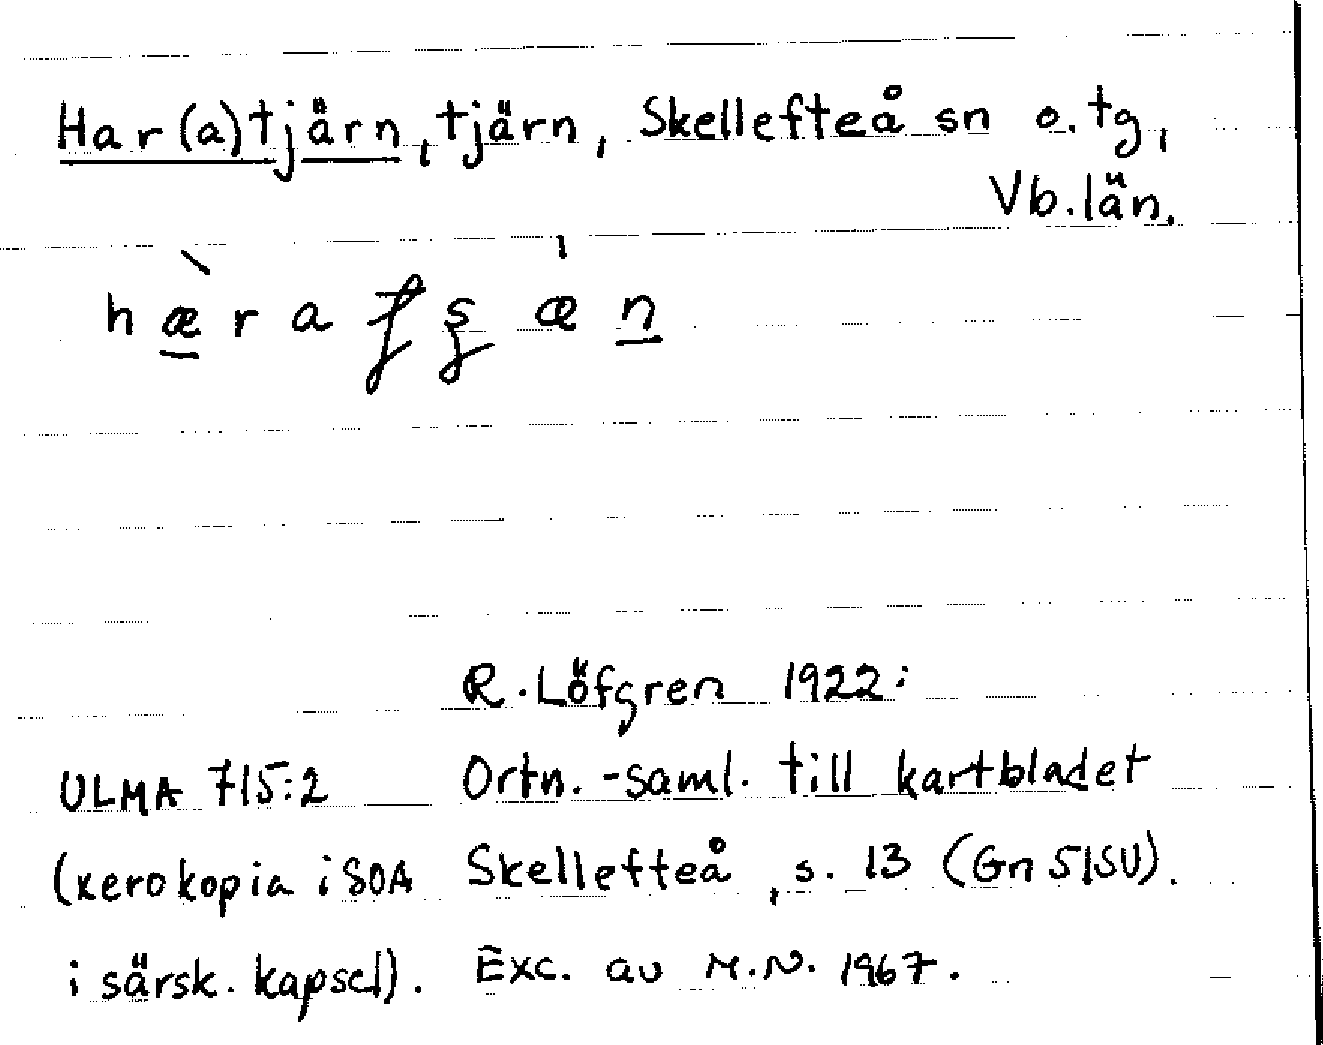 Har(a)tjärn, tjärn, Skellefteå sn o. tg,
Vb. län.
R. Löfgren 1922:
ULMA 715:2 Ortn.-saml. till kartbladet
(xerokopia i SOA Skellefteå, s. 13 (Gn 51SU).
i särsk. kapsel). Exc. av M.N. 1967.